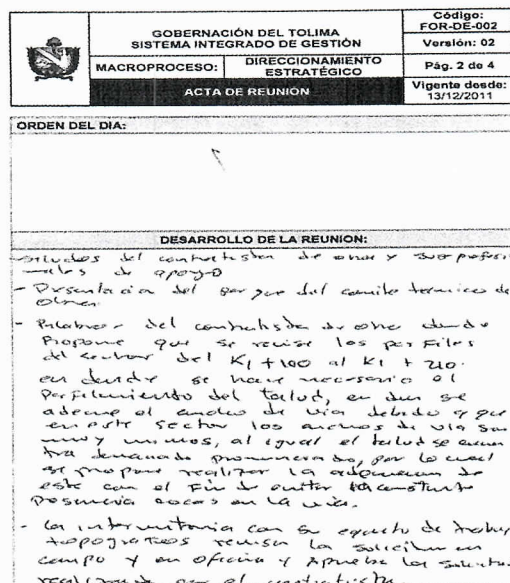 GOBERNACIÓN DEL TOLIMA
SISTEMA INTEGRADO DE GESTIÓN
Código:
FOR-DE-002
Versión: 02
MACROPROCESO: DIRECCIONAMIENTO ESTRATÉGICO
Pág. 2 de 4
ACTA DE REUNION
Vigente desde:
13/12/2011
ORDEN DEL DIA:
DESARROLLO DE LA REUNION:
del contratista de obra y sus profesio
nales de apoyo
- Presentacion del por que del comite tecnico de
obra
- Palabras del contratista de obra donde
propone que se revise los perfiles
del sector del K1 + 100 al K1 + 210.
en donde se hace necesario el
perfilamiento del talud, en se
adecue el ancho de via debido a que
en este sector los anchos de via son
muy, al igual el talud se encuen
tra demasiado pronunciado, por lo cual
se propone realizar la adecuacion de
este con el fin de evitar la constante
presencia rocas en la via.
- La interventoria con su equipo de trabajo
topograficos revisan la solicitud en
campo y en oficina y aprueba la solicitud
realizada por el contratista